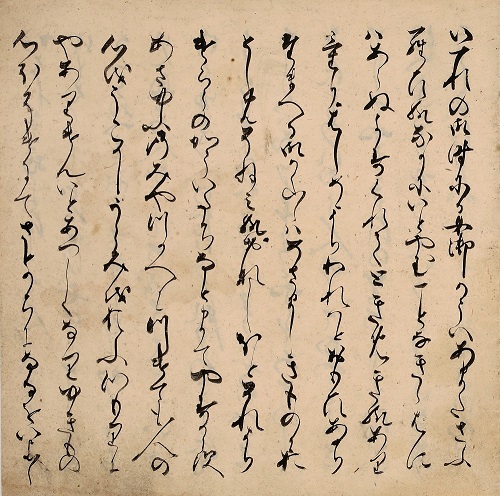 いつれの御時にか女御かういあまたさふ
らひ給なかにいとやむことなきゝはに
はあらぬかすくれてときめき給あり
けりはしめよりわれはとおもひあかり
たまへる御かた〳〵はめさましきものにお
としめそねみ給おなしほとそれより
けらうのかういたちはましてやすからす
あさゆふのみやつかへにつけても人の
心をうこかしうらみをおふつもりに
やありけんいとあつしくなりゆきもの
心ほそけにてさとかちになるをいよ〳〵